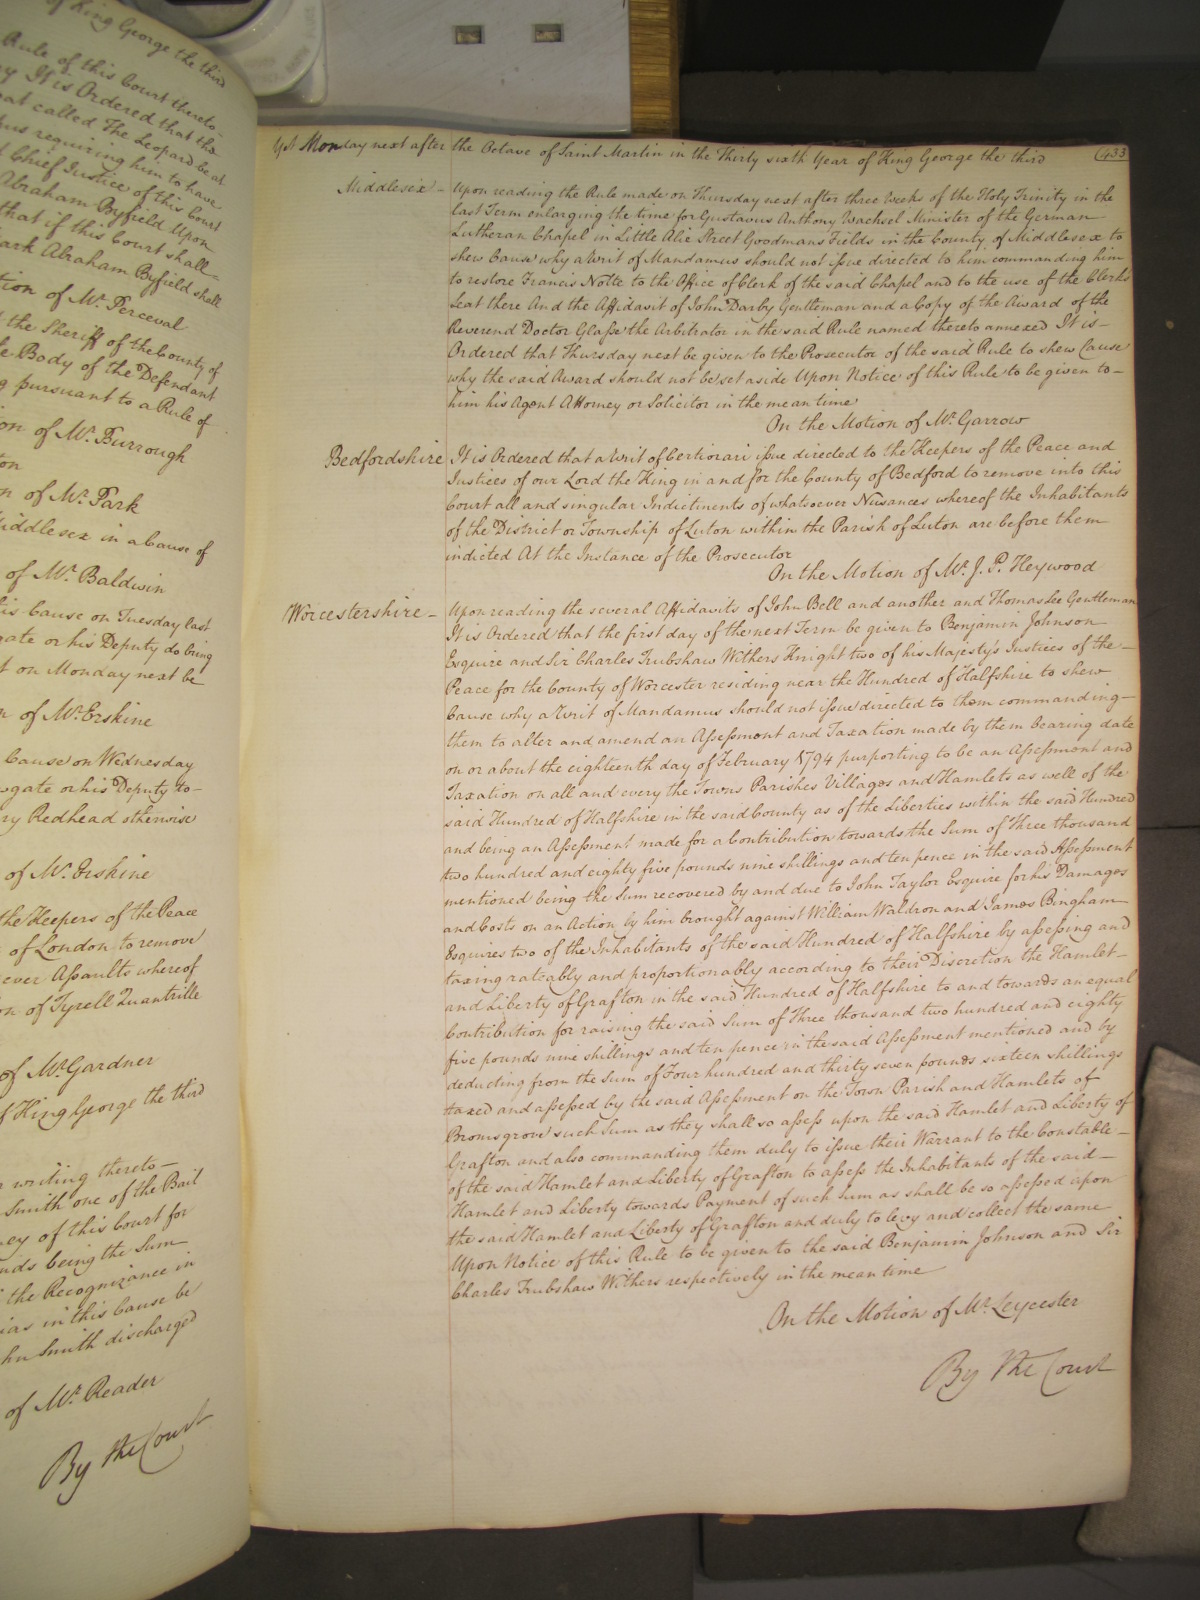 of King George the third
Rule of this Court thereto
It is Ordered that the
called The Leopard be at
requiring him to have
Chief Justice of this Court
Abraham Byfield Upon
that if this Court shall
Mark Abraham Byfield shall
tion of Mr. Perceval
the Sheriff of the County of
Body of the Defendant
pursuant to a Rule of
on of Mr. Burrough
n of Mr. Park
Middlesex in a Cause of
of Mr. Baldwin
this Cause on Tuesday last
gate or his Deputy do bring
on Monday next be
n of Mr. Erskine
Cause on Wednesday
wgate or his Deputy to
ry Redhead otherwise
of Mr. Erskine
the Keepers of the Peace
of London to remove
ever Assaults whereof
on of Tyrell Quantrille
of Mr. Gardner
of King George the third
writing thereto
Smith one of the Bail
ney of this Court for
nds being the Sum
the Recognizance in
ias in this Cause be
hn Smith discharged
of Mr. Reader
By the Court
Yet Monday next after the Octave of Saint Martin in the Thirty sixth Year of King George the third
(433
Middlesex Upon reading the Rule made on Thursday next after three Weeks of the Holy Trinity in the
last Term enlarging the time for Gustavus Anthony Wachsel Minister of the German
Lutheran Chapel in Little Alie Street Goodmans Fields in the County of Middlesex to
shew Cause why a Writ of Mandamus should not issue directed to him commanding him
to restore Francis Nolte to the Office of Clerk of the said Chapel and to the use of the Clerks
Seat there And the Affidavit of John Darby Gentleman and a Copy of the Award of the
Reverend Doctor Glasse the Arbitrator in the said Rule named thereto annexed It is
Ordered that Thursday next be given to the Prosecutor of the said Rule to shew Cause
why the said Award should not be set aside Upon Notice of this Rule to be given to
him his Agent Attorney or Solicitor in the mean time
On the Motion of Mr. Garrow
Bedfordshire It is Ordered that a Writ of Certiorari issue directed to the Keepers of the Peace and
Justices of our Lord the King in and for the County of Bedford to remove into this
Court all and singular Indictments of whatsoever Nusances whereof the Inhabitants
of the District or Township of Luton within the Parish of Luton are before them
indicted At the Instance of the Prosecutor
On the Motion of Mr. J. P. Heywood
Worcestershire Upon reading the several Affidavits of John Bell and another and Thomas Lee Gentleman
It is Ordered that the first day of the next Term be given to Benjamin Johnson
Esquire and Sir Charles Trubshaw Withers Knight two of his Majesty's Justices of the
Peace for the County of Worcester residing near the Hundred of Halfshire to shew
Cause why a Writ of Mandamus should not issue directed to them commanding
them to alter and amend an Assessment and Taxation made by them bearing date
on or about the eighteenth day of February 1794 purporting to be an Assessment and
Taxation on all and every the Towns Parishes Villages and Hamlets as well of the
said Hundred of Halfshire in the said County as of the Liberties within the said Hundred
and being an Assessment made for a Contribution towards the Sum of Three thousand
two hundred and eighty five pounds nine shillings and ten pence in the said Assessment
mentioned being the Sum recovered by and due to John Taylor Esquire for his Damages
and Costs on an Action by him brought against William Waldron and James Bingham
Esquires two of the Inhabitants of the said Hundred of Halfshire by assessing and
taxing rateably and proportionably according to their Discretion the Hamlet
and Liberty of Grafton in the said Hundred of Halfshire to and towards an equal
Contribution for raising the said Sum of Three thousand two hundred and eighty
five pounds nine shillings and ten pence in the said Assessment mentioned and by
deducting from the Sum of Four hundred and thirty seven pounds sixteen shillings
taxed and assessed by the said Assessment on the Town Parish and Hamlets of
Bromsgrove such Sum as they shall so assess upon the said Hamlet and Liberty of
Grafton and also commanding them duly to issue their Warrant to the Constable
of the said Hamlet and Liberty of Grafton to assess the Inhabitants of the said
Hamlet and Liberty towards Payment of such Sum as shall be so assessed upon
the said Hamlet and Liberty of Grafton and duly to levy and collect the same
Upon Notice of this Rule to be given to the said Benjamin Johnson and Sir
Charles Trubshaw Withers respectively in the mean time
On the Motion of Mr. Leycester
By the Court